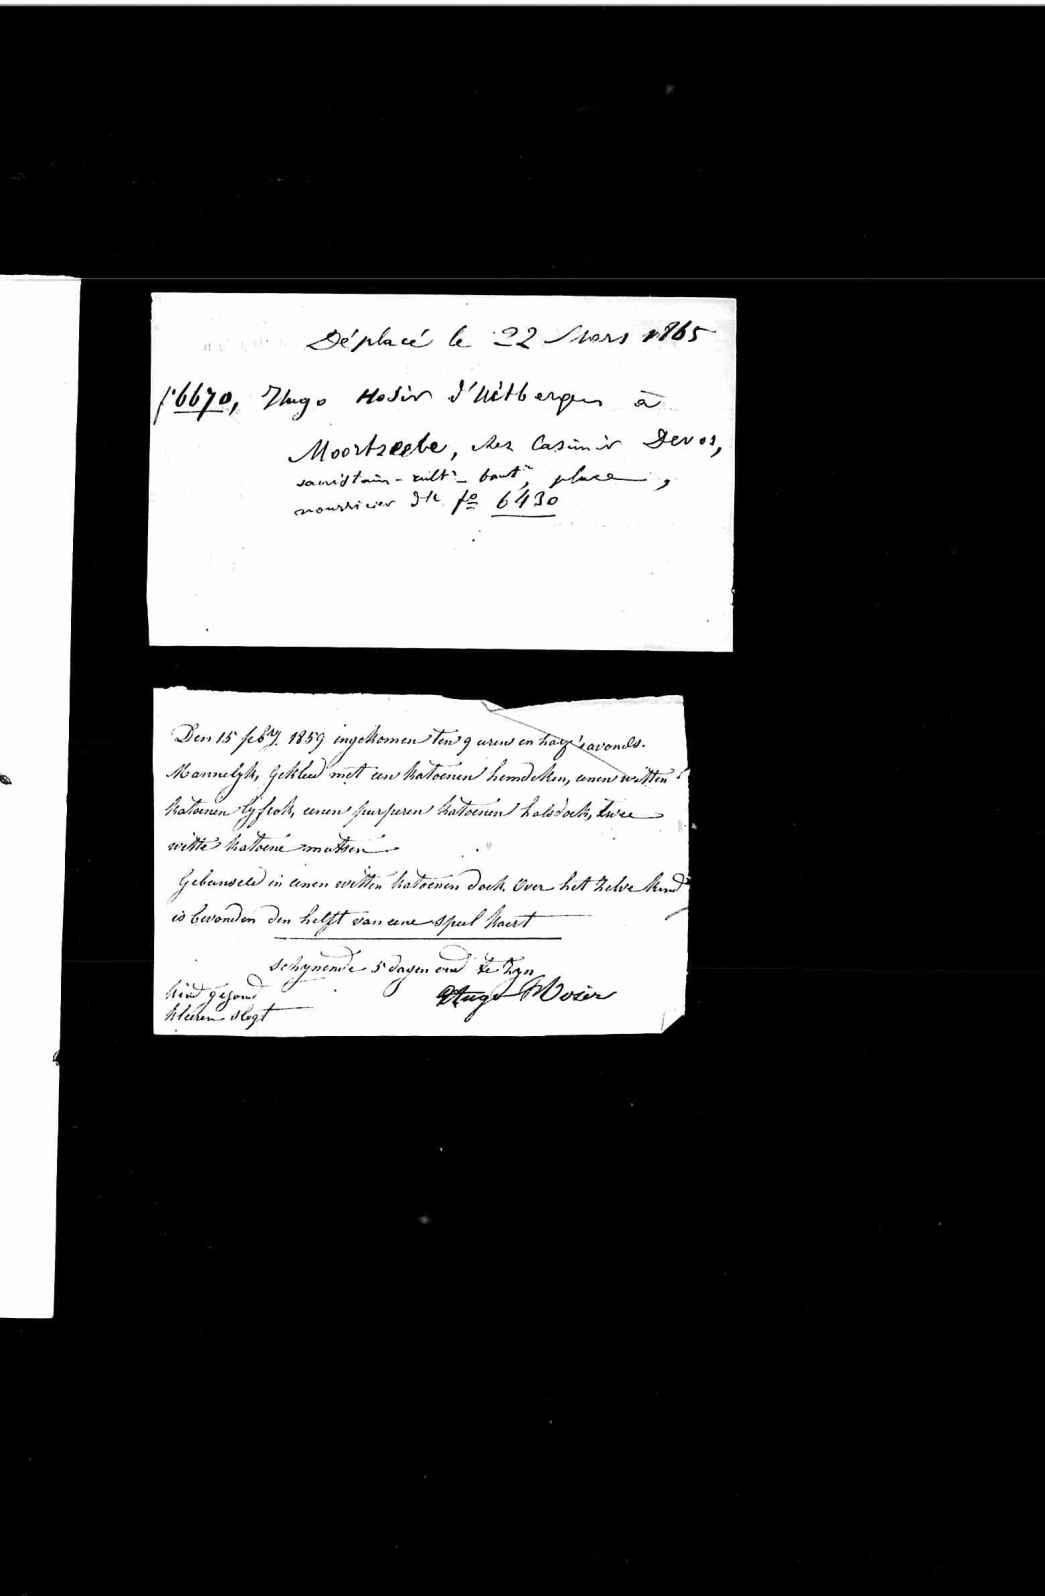 Déplacé le 22 Mars 1865
f° 6670, Hugo Mosir d'Uitbergen à
Moortzeele, chez Casimir Devos,
sacristain - cultr - boutr, place,
nourricier de f° 6430
Den 15 febry. 1859 ingekomen ten 9 uren en half 'savonds.
Mannelyk, Gekleed met een katoenen hemdeken, eenen witten
katoenen lyfrok, eenen purperen katoenen halsdoek, twee
witte katoene mutsen
Gebunseld in eenen witten katoenen doek Over het zelve kind
is bevonden den helft van eene speel kaert
schynende 5 dagen oud te zyn
kind gezond
Hugo Mosir
kleeren slegt